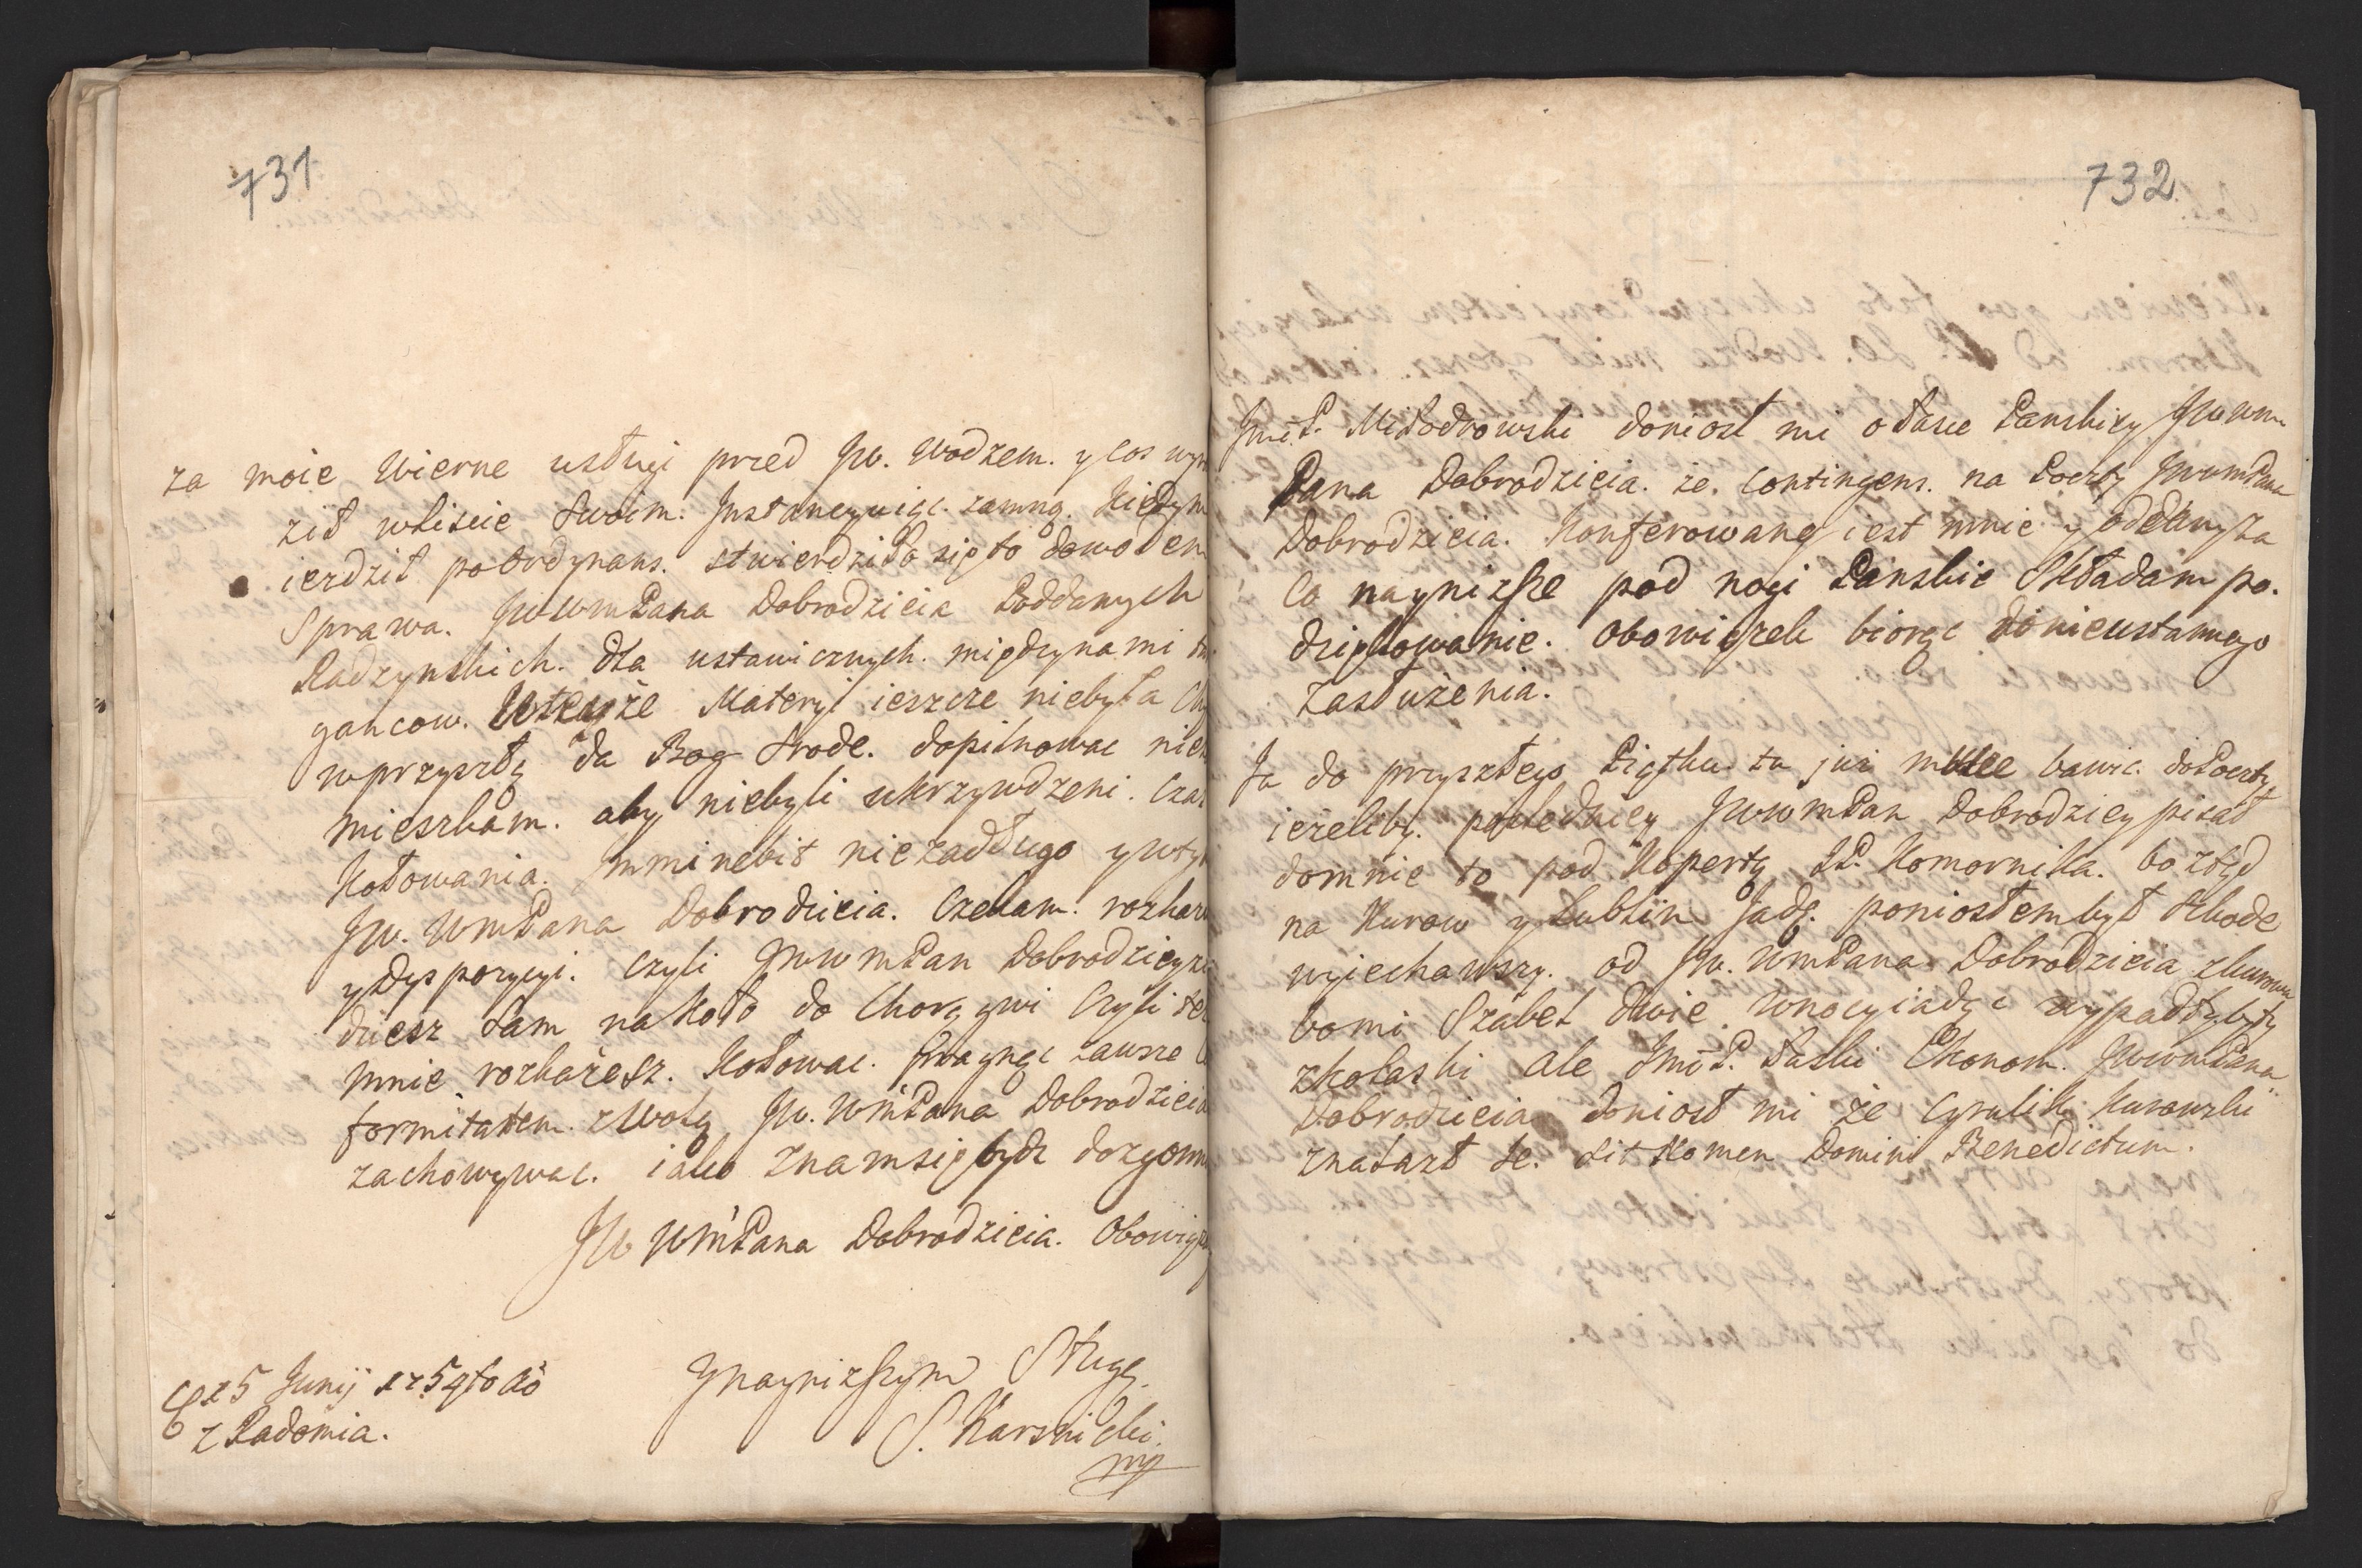 731
za moie wierne usługi przed Jw. Wodzem. y cos wyra
ził wliscie swoim. Instancyuiąc. zamną. Kiedym
ierdził poordynans. stwierdziło się to dowodem
Sprawa. JWWmPana Dobrodzieia Poddanych
Radzynskich. dla ustawicznych. między nami
gancow. Wteyże Materyi ieszcze niebyła
wprzyszłą da Bog Srode. dopilnowac nie
mieszkam. aby niebyli ukrzywdzeni. Czas
Kołowania. Imminebit niezadługo y wtym
Jw. WmPana Dobrodzieia. Czekam. rozkazu
y Dyspozycyi. Czyli JWWmPan Dobrodziey
dziesz sam na Koło do Chorągwi Czyli
mnie rozkażesz. Kołowac. Pragnąc zawsze
formitatem. z Wolą Jw. WmPana Dobrodzieia
zachowywac. iako znam się bydz dozgonn
JW WmPana Dobrodzieia. Obowiąz
D 25 Junij 1754to Ao
z Radomia.
Ynayniższym Sługą.
S. Karsnicki.
mp
732
JmćP. Miłodrowski doniosł mi o łasce Panskiey JWWm
Pana Dobrodzieia. że. Contingens. na Poczty JWWmPana
Dobrodzieia. Konferowany iest mnie y oddany za
Co nayniższe pod nogi Panskie Składam po.
dziękowanie. Obowiązek biorąc do nieustannego
zasłużenia.
Ja do przyszłego Piątku tu już muszę bawic. do Poczty
ieżeliby. posledniey JWWmPan Dobrodziey pisał
domnie to pod Kopertą JP. Komornika. bo ztąd
na Kurow y Lublin Jadę. poniosłem był Szkode
wyiechawszy. od Jw. WmPana Dobrodzieia z Kurowa
bo mi Szabel dwie Wnocy iadąc wypadły były
zkolaski ale JmćP. Paski Ekonom. JWWmPana
Dobrodzieia doniosł mi że Cyrulik Kurowski
znalazł te. sit Nomen Domini Benedictum.